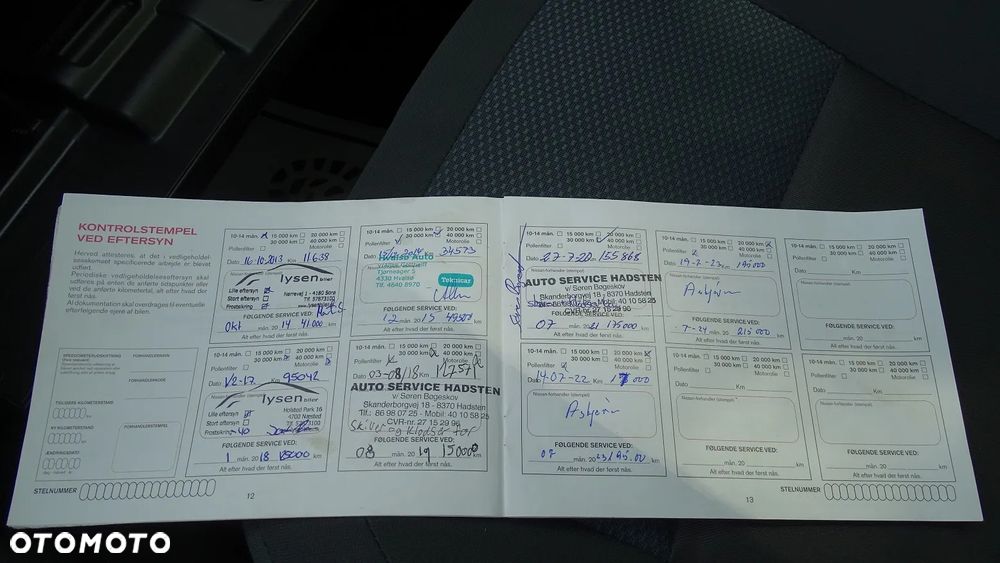 KONTROLSTEMPEL
VED EFTERSYN
Herved attesteres, at det i vedligeholdelsesskemaet specificerede arbejde er blevet
udført.
Periodiske vedligeholdelseseftersyn skal
udføres på enten de anførte tidspunkter eller
ved de anførte kilometertal, alt efter hvad der
først nås.
Al dokumentation skal overdrages til eventuelle
efterfølgende ejere af bilen.
SPEEDOMETERUDSKIFTNING
FORHANDLERNAVN
FORHANDLERKODE
TIDLIGERE KILOMETERSTAND
NY KILOMETERSTAND
FORHANDLERSTEMPEL
ÆNDRINGSDATO
STELNUMMER
10-14 mån. 15 000 km 20 000 km
30 000 km 40 000 km
Pollenfilter Motorolie
Dato 16-10-2013 Km 11638
Nissan-forhandler (stempel)
lysen biler
Ulle eftersyn
Start eftersyn
Frostsikring
Nørrevej 1 - 4180 Sorø
Tlf. 57873100
FØLGENDE SERVICE VED:
Okt mån. 20 14 41.000 km
Alt efter hvad der først nås.
10-14 mån. 15 000 km 20 000 km
30 000 km 40 000 km
Pollenfilter Motorolie
34573
Hvalsø Auto
Tjørneager 5
4330 Hvalsø
Tlf. 4640 8970
Teknicar
FØLGENDE SERVICE VED:
12 mån. 20 15 49500 km
Alt efter hvad der først nås.
10-14 mån. 15 000 km 20 000 km
30 000 km 40 000 km
Pollenfilter Motorolie
Dato 1/2-17 Km 95042
Nissan-forhandler (stempel)
lysen biler
Ulle eftersyn
Start eftersyn
Frostsikring -40
Holsted Park 16
4700 Næstved
Tlf. 57873100
FØLGENDE SERVICE VED:
1 mån. 20 18
Alt efter hvad der først nås.
10-14 mån. 15 000 km 20 000 km
30 000 km 40 000 km
Pollenfilter Motorolie
Dato 03-08/18 Km
AUTO SERVICE HADSTEN
v/ Søren Bøgeskov
Skanderborgvej 18 - 8370 Hadsten
Tlf.: 86 98 07 25 - Mobil: 40 10 58 25
CVR-nr. 27 15 29 96
Skiver og klodser for
FØLGENDE SERVICE VED:
08 mån. 20 19 150000 km
Alt efter hvad der først nås.
12
10-14 mån. 15 000 km 20 000 km
30 000 km 40 000 km
Pollenfilter Motorolie
Dato 27-7-20 Km 155868
Nissan-forhandler (stempel)
AUTO SERVICE HADSTEN
v/ Søren Bøgeskov
Skanderborgvej 18 - 8370 Hadsten
Tlf.: 86 98 07 25 - Mobil: 40 10 58 25
CVR-nr. 27 15 29 96
FØLGENDE SERVICE VED:
07 mån. 20 21 175000 km
Alt efter hvad der først nås.
10-14 mån. 15 000 km 20 000 km
30 000 km 40 000 km
Pollenfilter Motorolie
Dato 19-7-23 Km 195000
Nissan-forhandler (stempel)
FØLGENDE SERVICE VED:
7-24 mån. 20 215000 km
Alt efter hvad der først nås.
10-14 mån. 15 000 km 20 000 km
30 000 km 40 000 km
Pollenfilter Motorolie
Dato Km
Nissan-forhandler (stempel)
FØLGENDE SERVICE VED:
mån. 20 km
Alt efter hvad der først nås.
10-14 mån. 15 000 km 20 000 km
30 000 km 40 000 km
Pollenfilter Motorolie
Dato 14-07-22 Km
Nissan-forhandler (stempel)
FØLGENDE SERVICE VED:
07 mån. 20 23 km
Alt efter hvad der først nås.
10-14 mån. 15 000 km 20 000 km
30 000 km 40 000 km
Pollenfilter Motorolie
Dato Km
Nissan-forhandler (stempel)
FØLGENDE SERVICE VED:
mån. 20 km
Alt efter hvad der først nås.
10-14 mån. 15 000 km 20 000 km
30 000 km 40 000 km
Pollenfilter Motorolie
Dato Km
Nissan-forhandler (stempel)
FØLGENDE SERVICE VED:
mån. 20 km
Alt efter hvad der først nås.
13
STELNUMMER
OTOMOTO